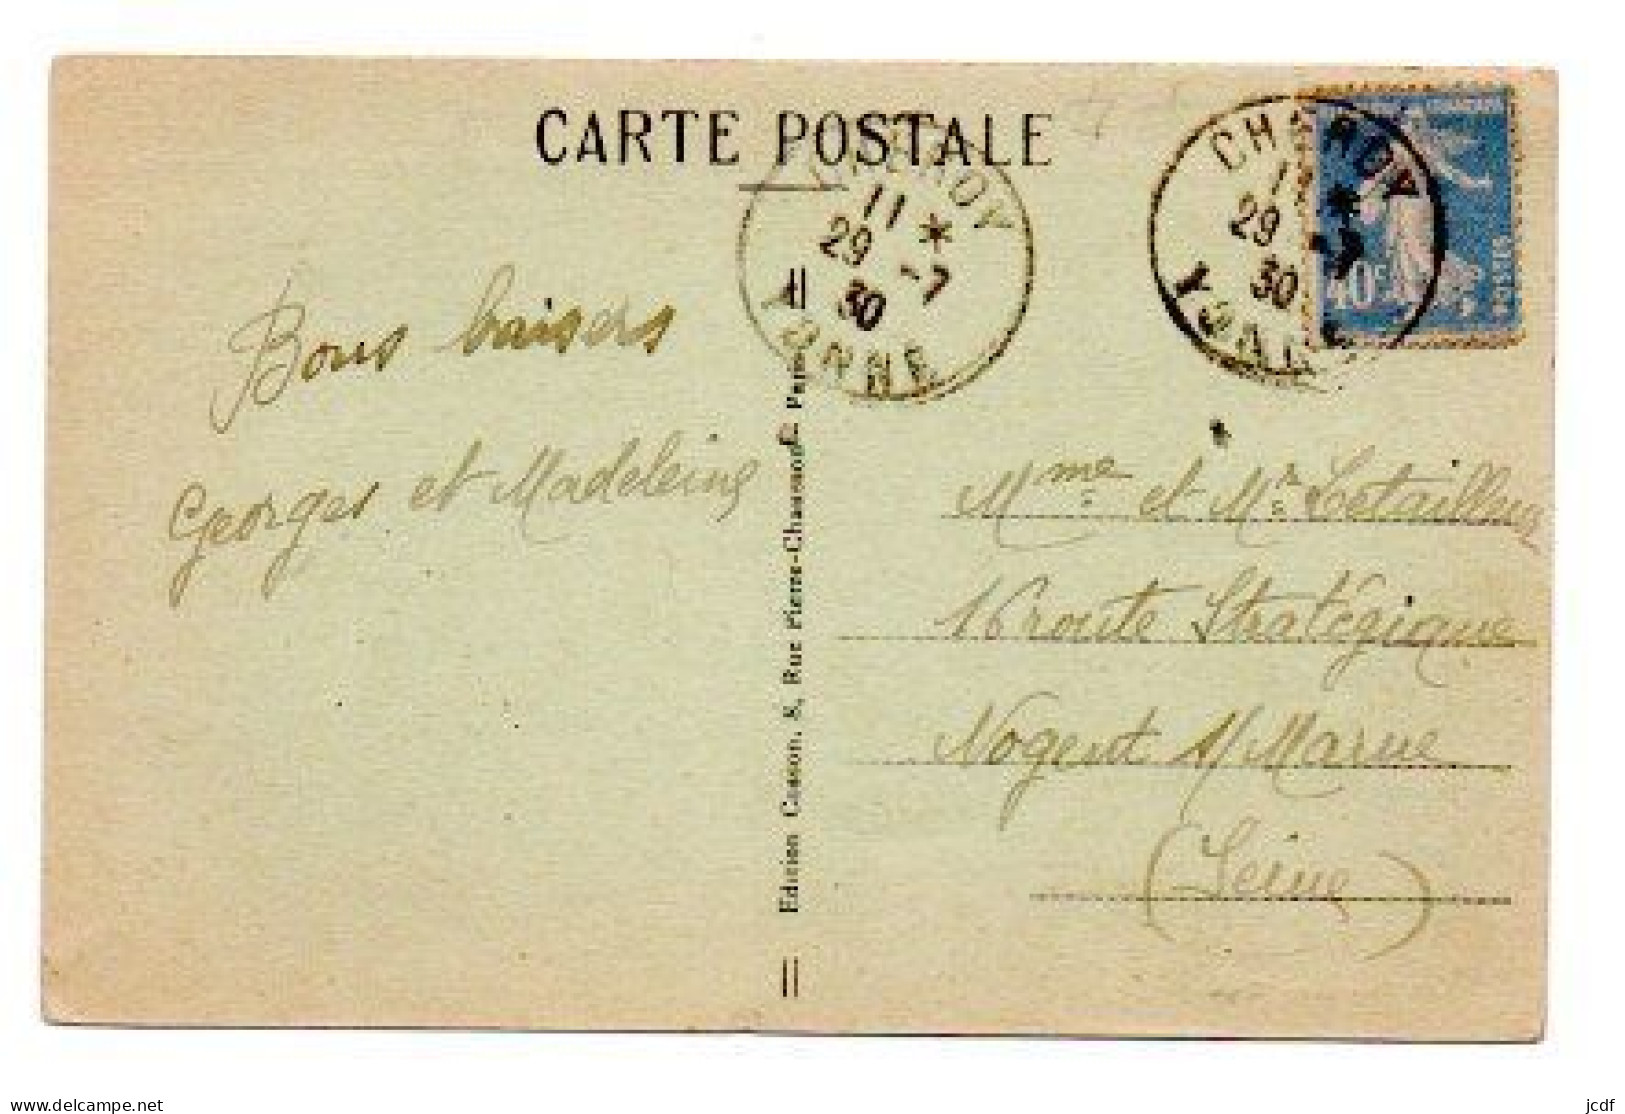 CARTE POSTALE
CHARNY
11 *
29 -7
30
YONNE
CHARNY
29 -7
30
YONNE
40c
POSTES
Bons baisers
Georges et Madeleine
Mme et Mr Letailleur
16 route Stratégique
Nogent s/ Marne
(Seine)
Edition Casson, 8, Rue Pierre-Chausson, Paris
www.delcampe.net
jcdf